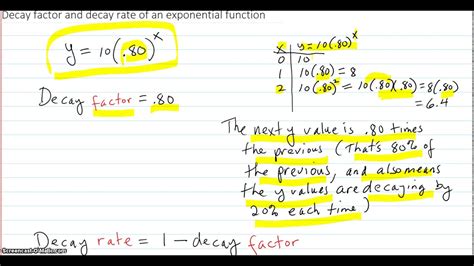 Decay factor and decay rate of an exponential function
y = 10(.80)^x
Decay factor = .80
x | y = 10(.80)^x
0 | 10
1 | 10(.80) = 8
2 | 10(.80)² = 10(.80)(.80) = 8(.80)
= 6.4
The next y value is .80 times
the previous (That's 80% of
the previous, and also means
the y values are decaying by
20% each time)
Decay rate = 1 - decay factor
Screencast-O-Matic.com